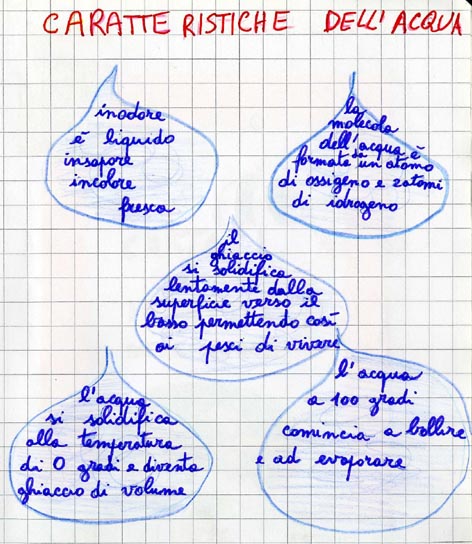 CARATTERISTICHE DELL'ACQUA
inodore
è liquido
insapore
incolore
fresca
la
molecola
dell'acqua è
formata da un atomo
di ossigeno e 2 atomi
di idrogeno
il
ghiaccio
si solidifica
lentamente dalla
superficie verso il
basso permettendo così
ai pesci di vivere
l'acqua
si solidifica
alla temperatura
di 0 gradi e diventa
ghiaccio di volume
l'acqua
a 100 gradi
comincia a bollire
e ad evaporare